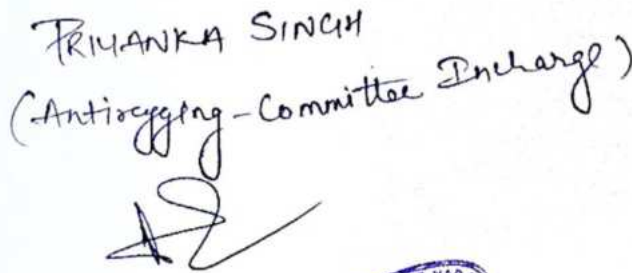 PRIYANKA SINGH
(Antiragging-Committee Incharge)